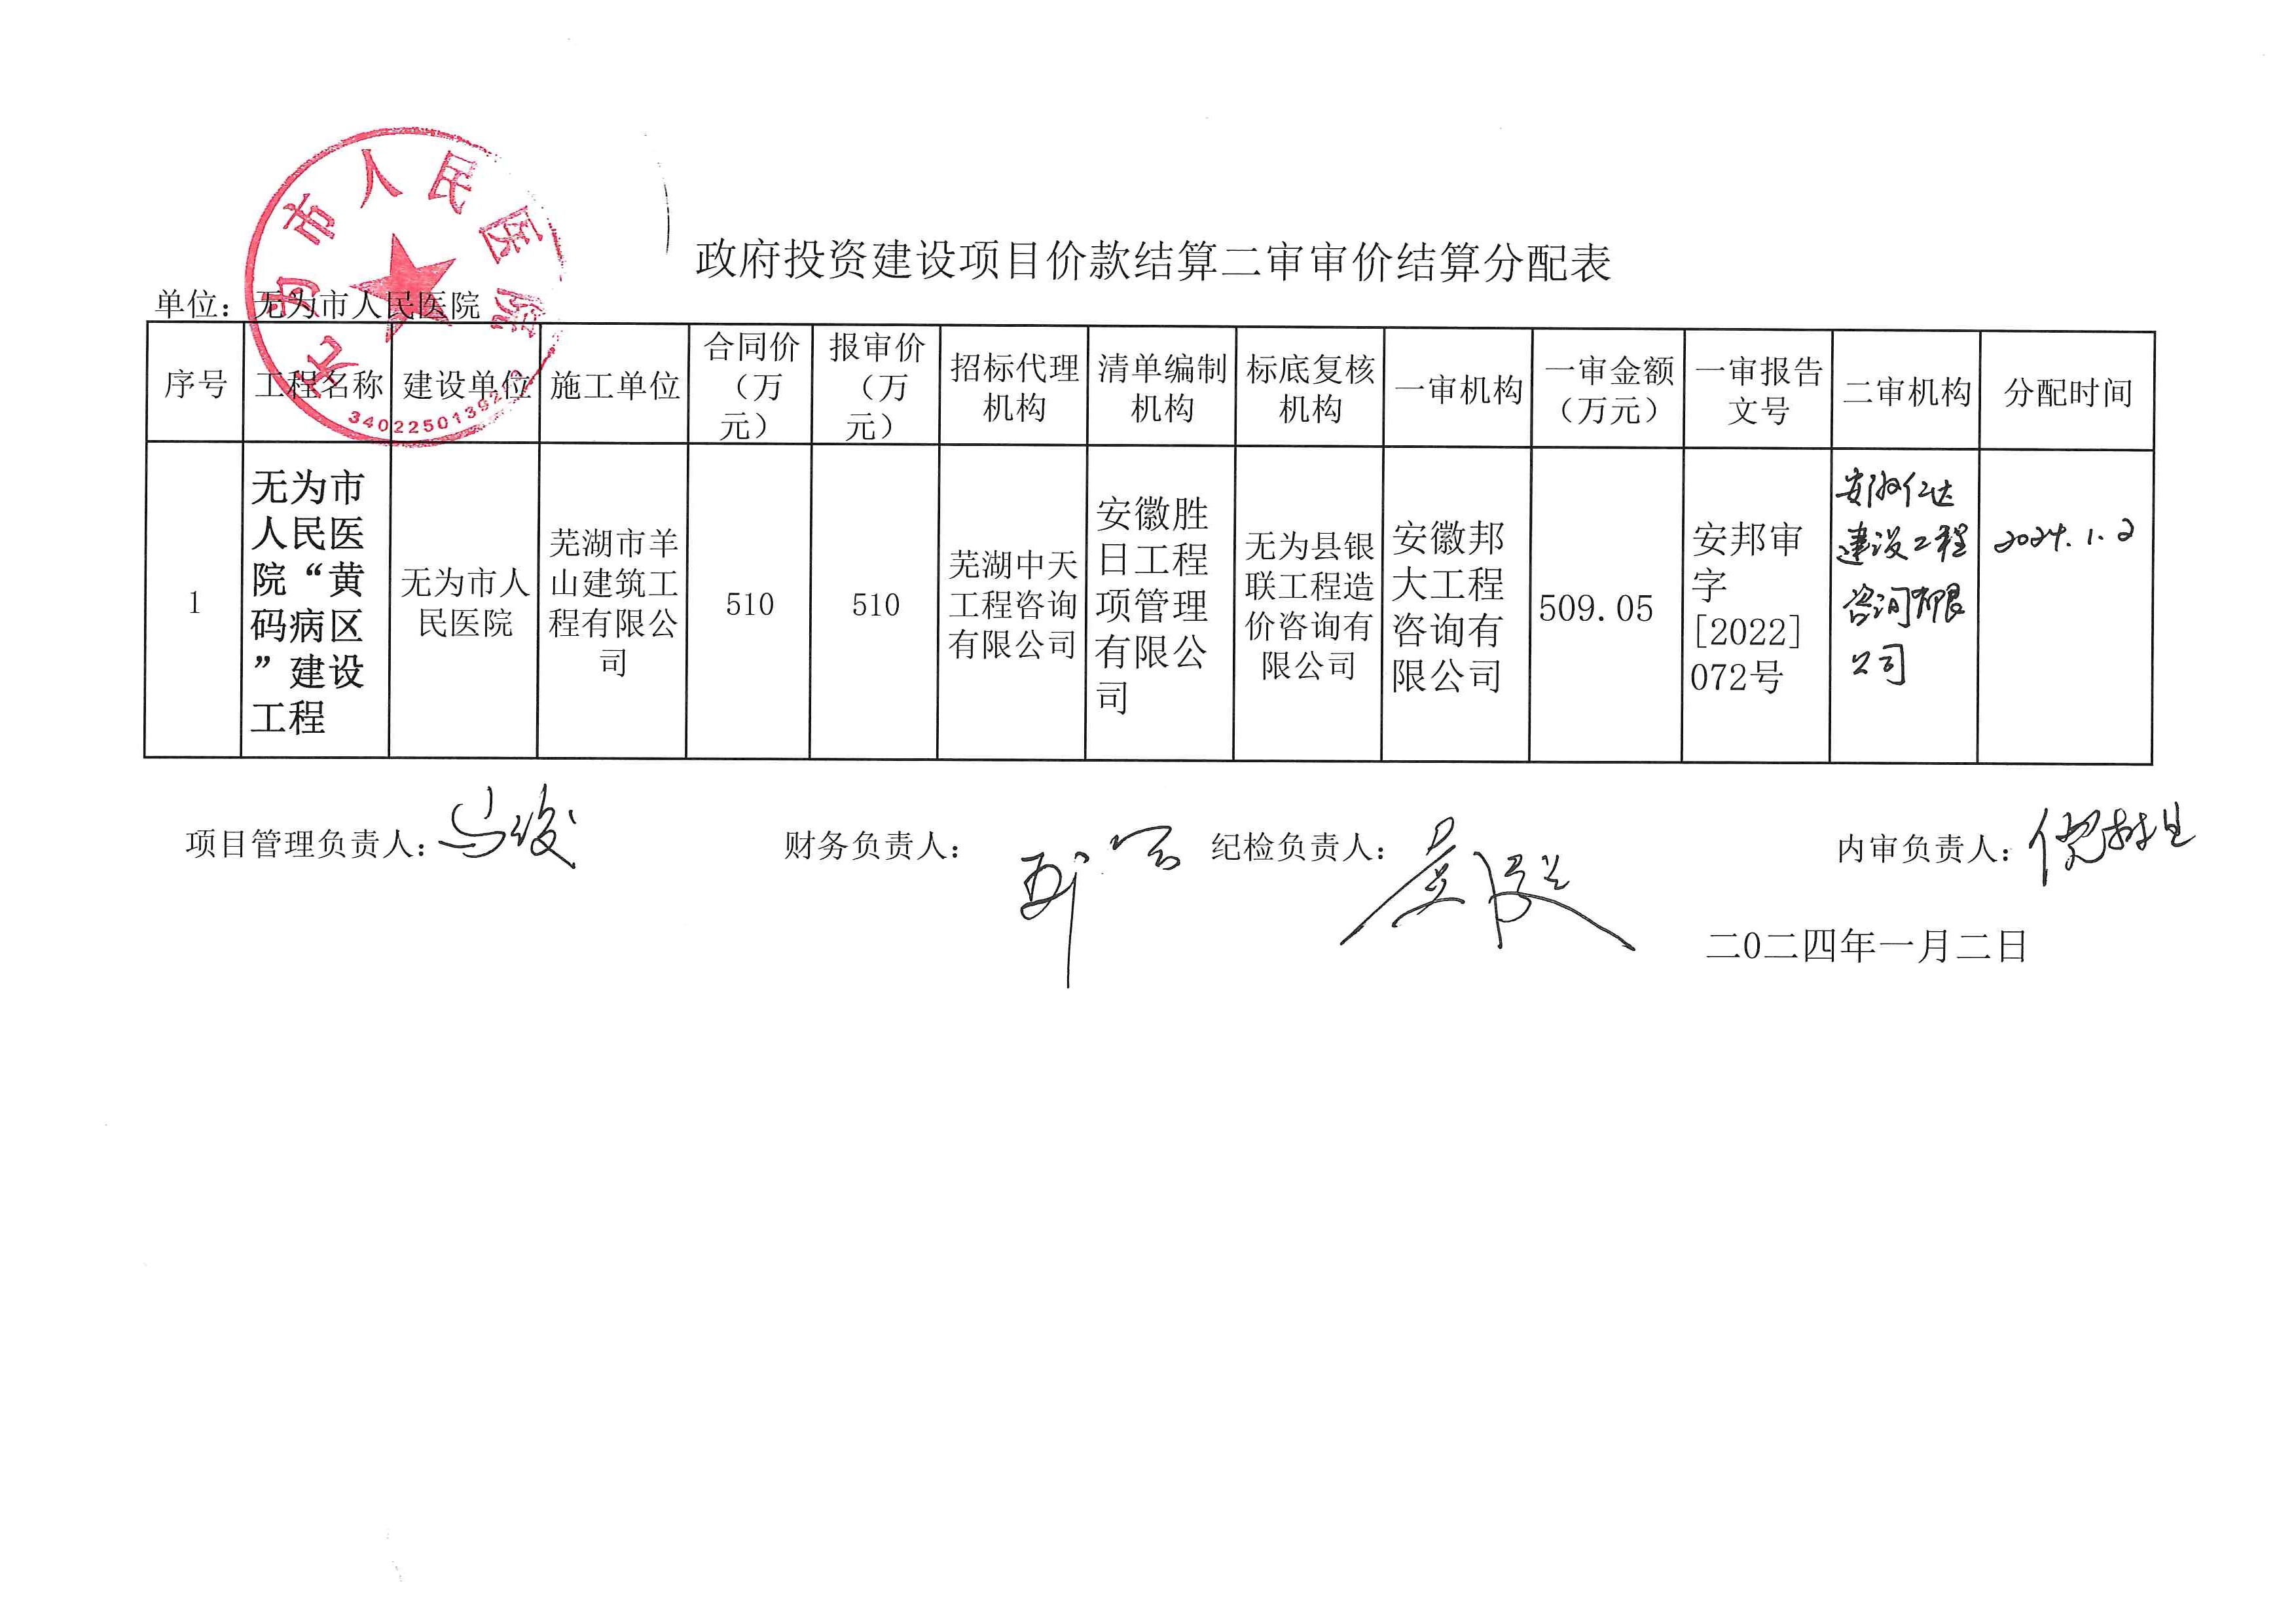 政府投资建设项目价款结算二审审价结算分配表
单位：无为市人民医院
无为市人民医院
序号 工程名称 建设单位 施工单位 合同价（万元） 报审价（万元） 招标代理机构 清单编制机构 标底复核机构 一审机构 一审金额（万元） 一审报告文号 二审机构 分配时间
1 无为市人民医院“黄码病区”建设工程 无为市人民医院 芜湖市羊山建筑工程有限公司 510 510 芜湖中天工程咨询有限公司 安徽胜日工程项管理有限公司 无为县银联工程造价咨询有限公司 安徽邦大工程咨询有限公司 509.05 安邦审字[2022]072号 安徽仁达建设工程咨询有限公司 2024.1.2
项目管理负责人： 财务负责人： 纪检负责人： 内审负责人：
二0二四年一月二日